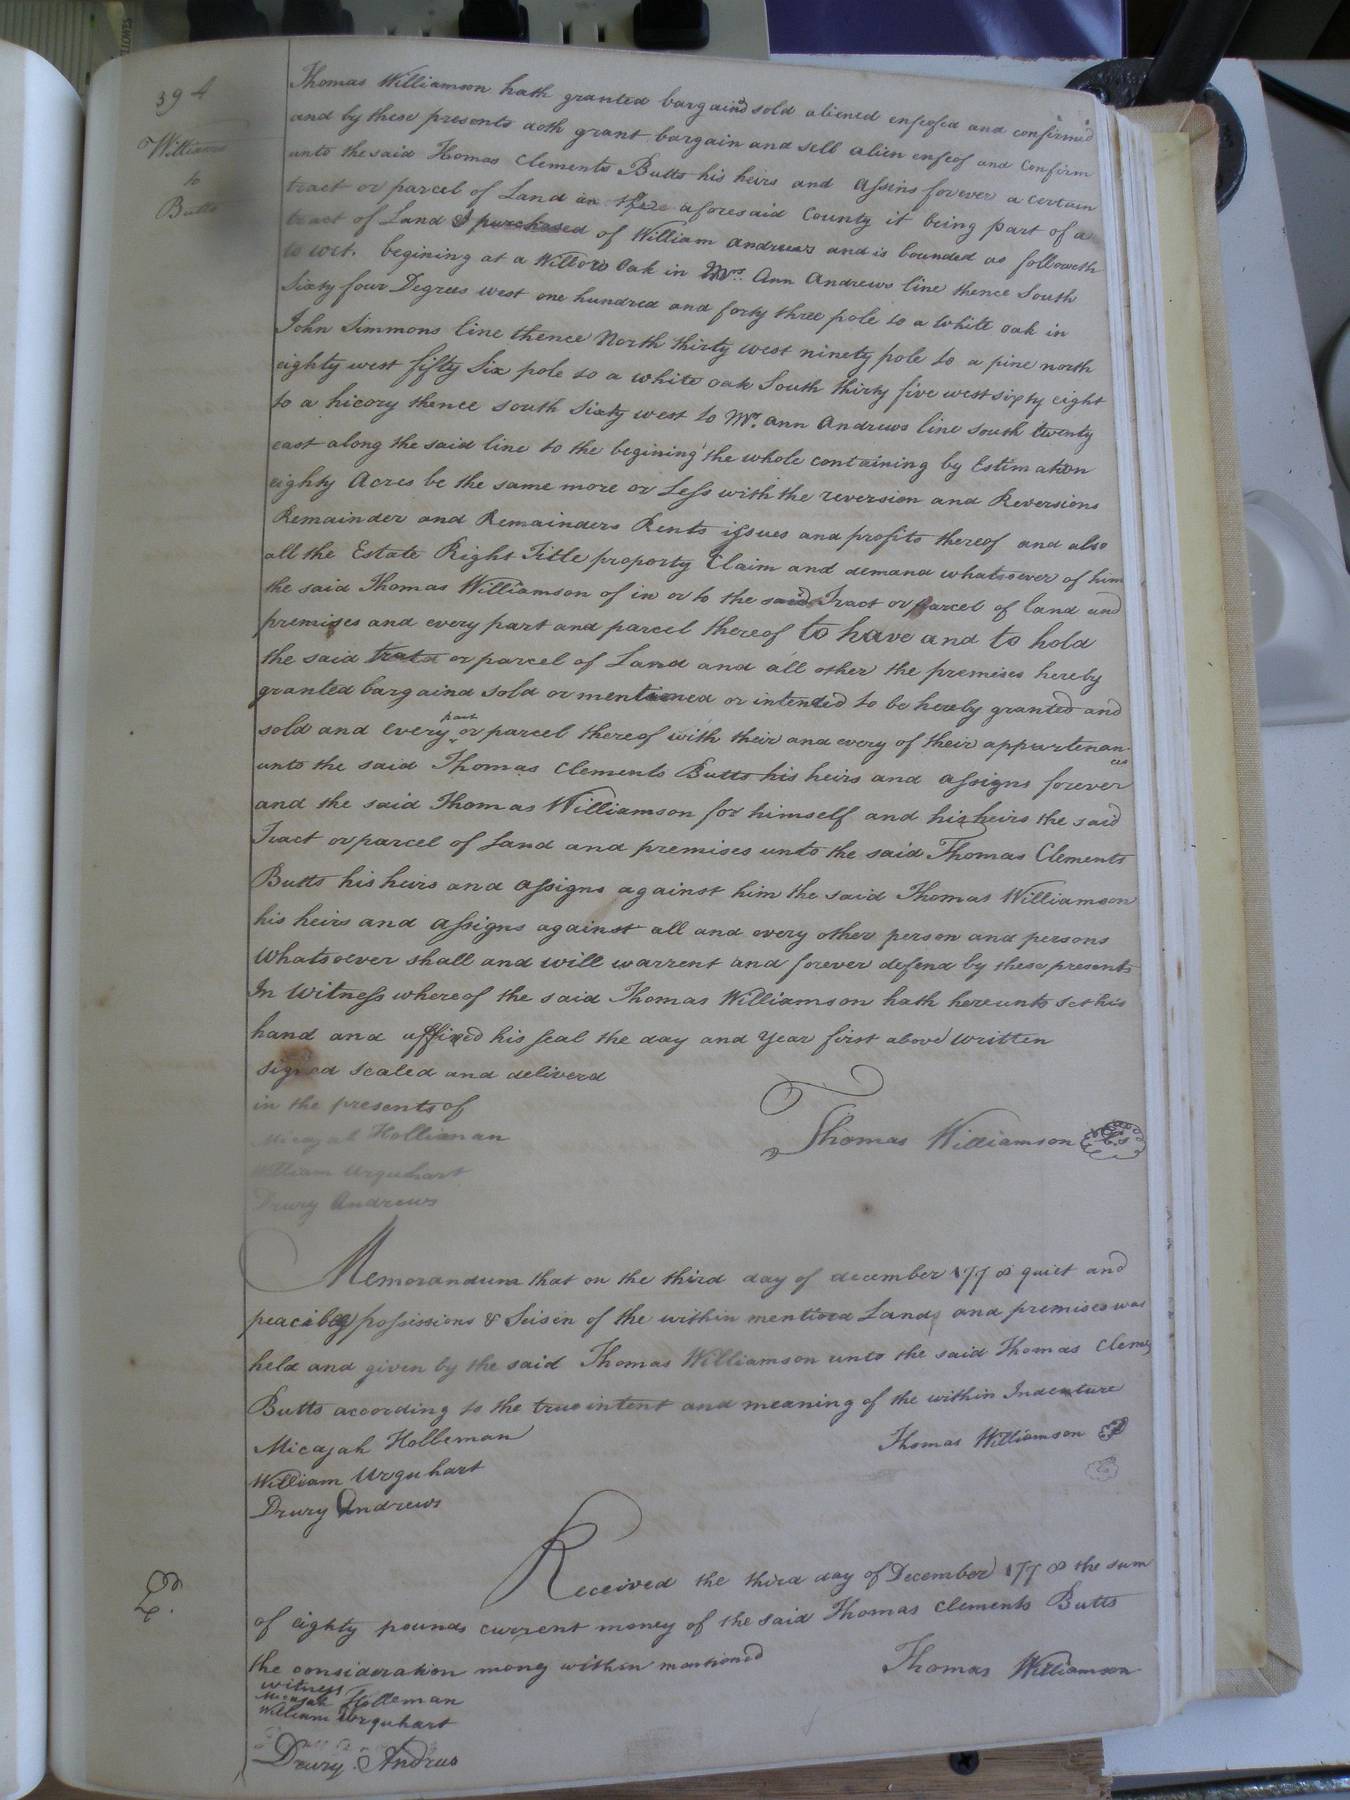 394
Williams
to
Butts
Thomas Williamson hath granted bargaind sold aliened enfeofed and confirmed
and by these presents doth grant bargain and sell alien enfeof and Confirm
unto the said Thomas Clements Butts his heirs and assins forever a certain
tract or parcel of Land in the aforesaid County it being part of a
tract of Land I purchased of William Andrews and is bounded as followeth
to wit. begining at a Willow Oak in Mrs. Ann Andrews line thence South
Sixty four Degrees west one hundred and forty three pole to a White oak in
John Simmons line thence North thirty west ninety pole to a pine north
eighty west fifty Six pole to a white oak South thirty five west sixty eight
to a hicory thence south Sixty west to Mrs. ann Andrews line south twenty
east along the said line to the begining the whole containing by Estimation
eighty Acres be the same more or Less with the reversion and Reversions
Remainder and Remainders Rents issues and profits thereof and also
all the Estate Right Title proporty Claim and demand whatsoever of him
the said Thomas Williamson of in or to the said Tract or parcel of land and
premises and every part and parcel thereof to have and to hold
the said or parcel of Land and all other the premises hereby
granted bargaind sold or mentioned or intended to be hereby granted and
sold and every part or parcel thereof with their and every of their appurtenan
ces
unto the said Thomas Clements Butts his heirs and assigns forever
and the said Thomas Williamson for himself and his heirs the said
Tract or parcel of Land and premises unto the said Thomas Clements
Butts his heirs and assigns against him the said Thomas Williamson
his heirs and assigns against all and every other person and persons
Whatsoever shall and will warrent and forever defend by these presents
In Witness whereof the said Thomas Williamson hath hereunto set his
hand and affixed his seal the day and Year first above written
signed sealed and deliverd
in the presents of
Micajah Holliman
William Urquhart
Drury Andrews
Thomas Williamson L.s
Memorandum that on the third day of december 1778 quiet and
peacibly possissions & Seisin of the within mentiond Lands and premises was
held and given by the said Thomas Williamson unto the said Thomas Clemts
Butts according to the true intent and meaning of the within Indenture
Micajah Holleman
William Urquhart
Drury Andrews
Thomas Williamson
Received the third day of December 1778 the sum
of eighty pounds current money of the said Thomas Clements Butts
the consideration money within mentioned
Thomas Williamson
witness
Micajah Holleman
William Urquhart
Drury Andrus